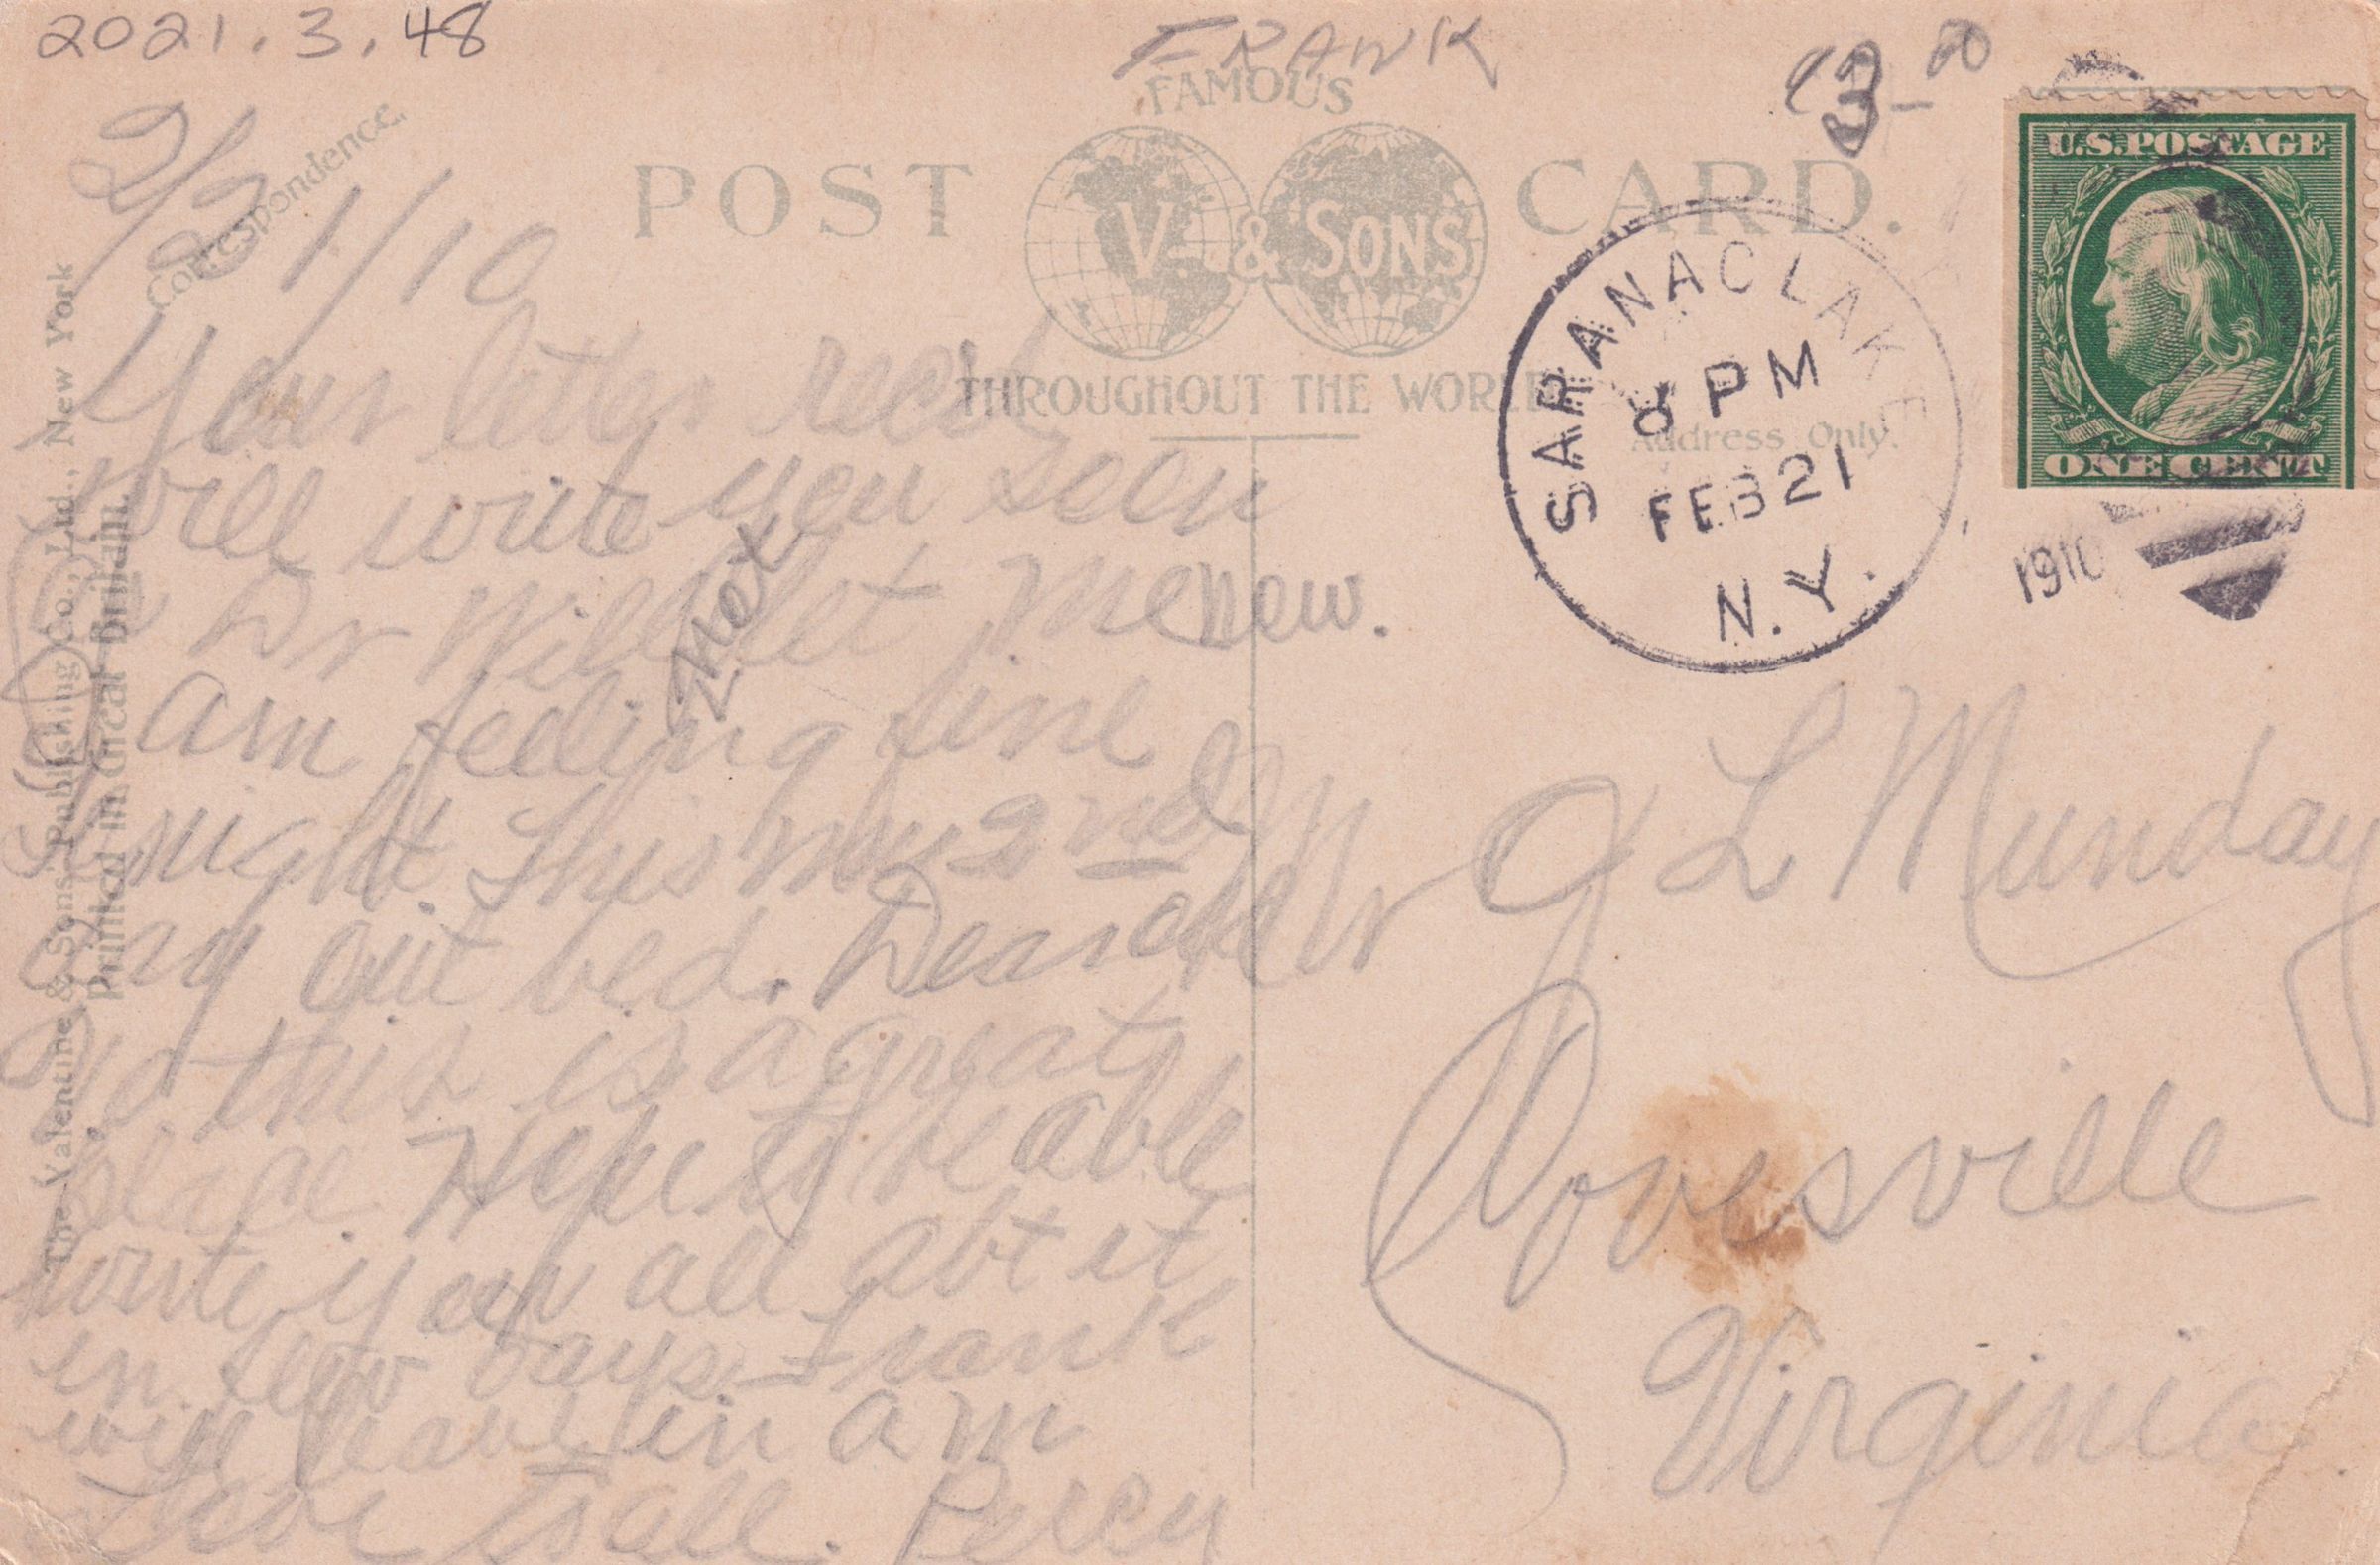 2021.3.48
FRANK
3.00
2/21/10
Correspondence.
FAMOUS
POST CARD.
V. & SONS
THROUGHOUT THE WORLD
Address Only.
U.S.POSTAGE
ONE CENT
SARANAC LAKE
8 PM
FEB 21
N.Y.
1910
The Valentine & Sons' Publishing Co., Ltd., New York
Printed in Great Britain.
Your letter recd
Will write you soon
Dr Will let me new.
not
Am feeling fine
to night. This my 2nd
day out bed. Dear old
this is a great
place Hope to be able
write you all abt it
in few days Frank
will leave in am
Love to all. Percy
Mr J L Munday
Rovesville
Virginia